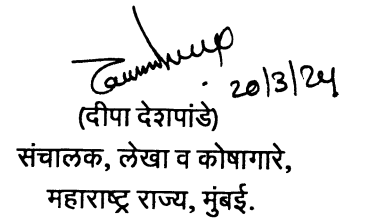 20/3/24
(दीपा देशपांडे)
संचालक, लेखा व कोषागारे,
महाराष्ट्र राज्य, मुंबई.